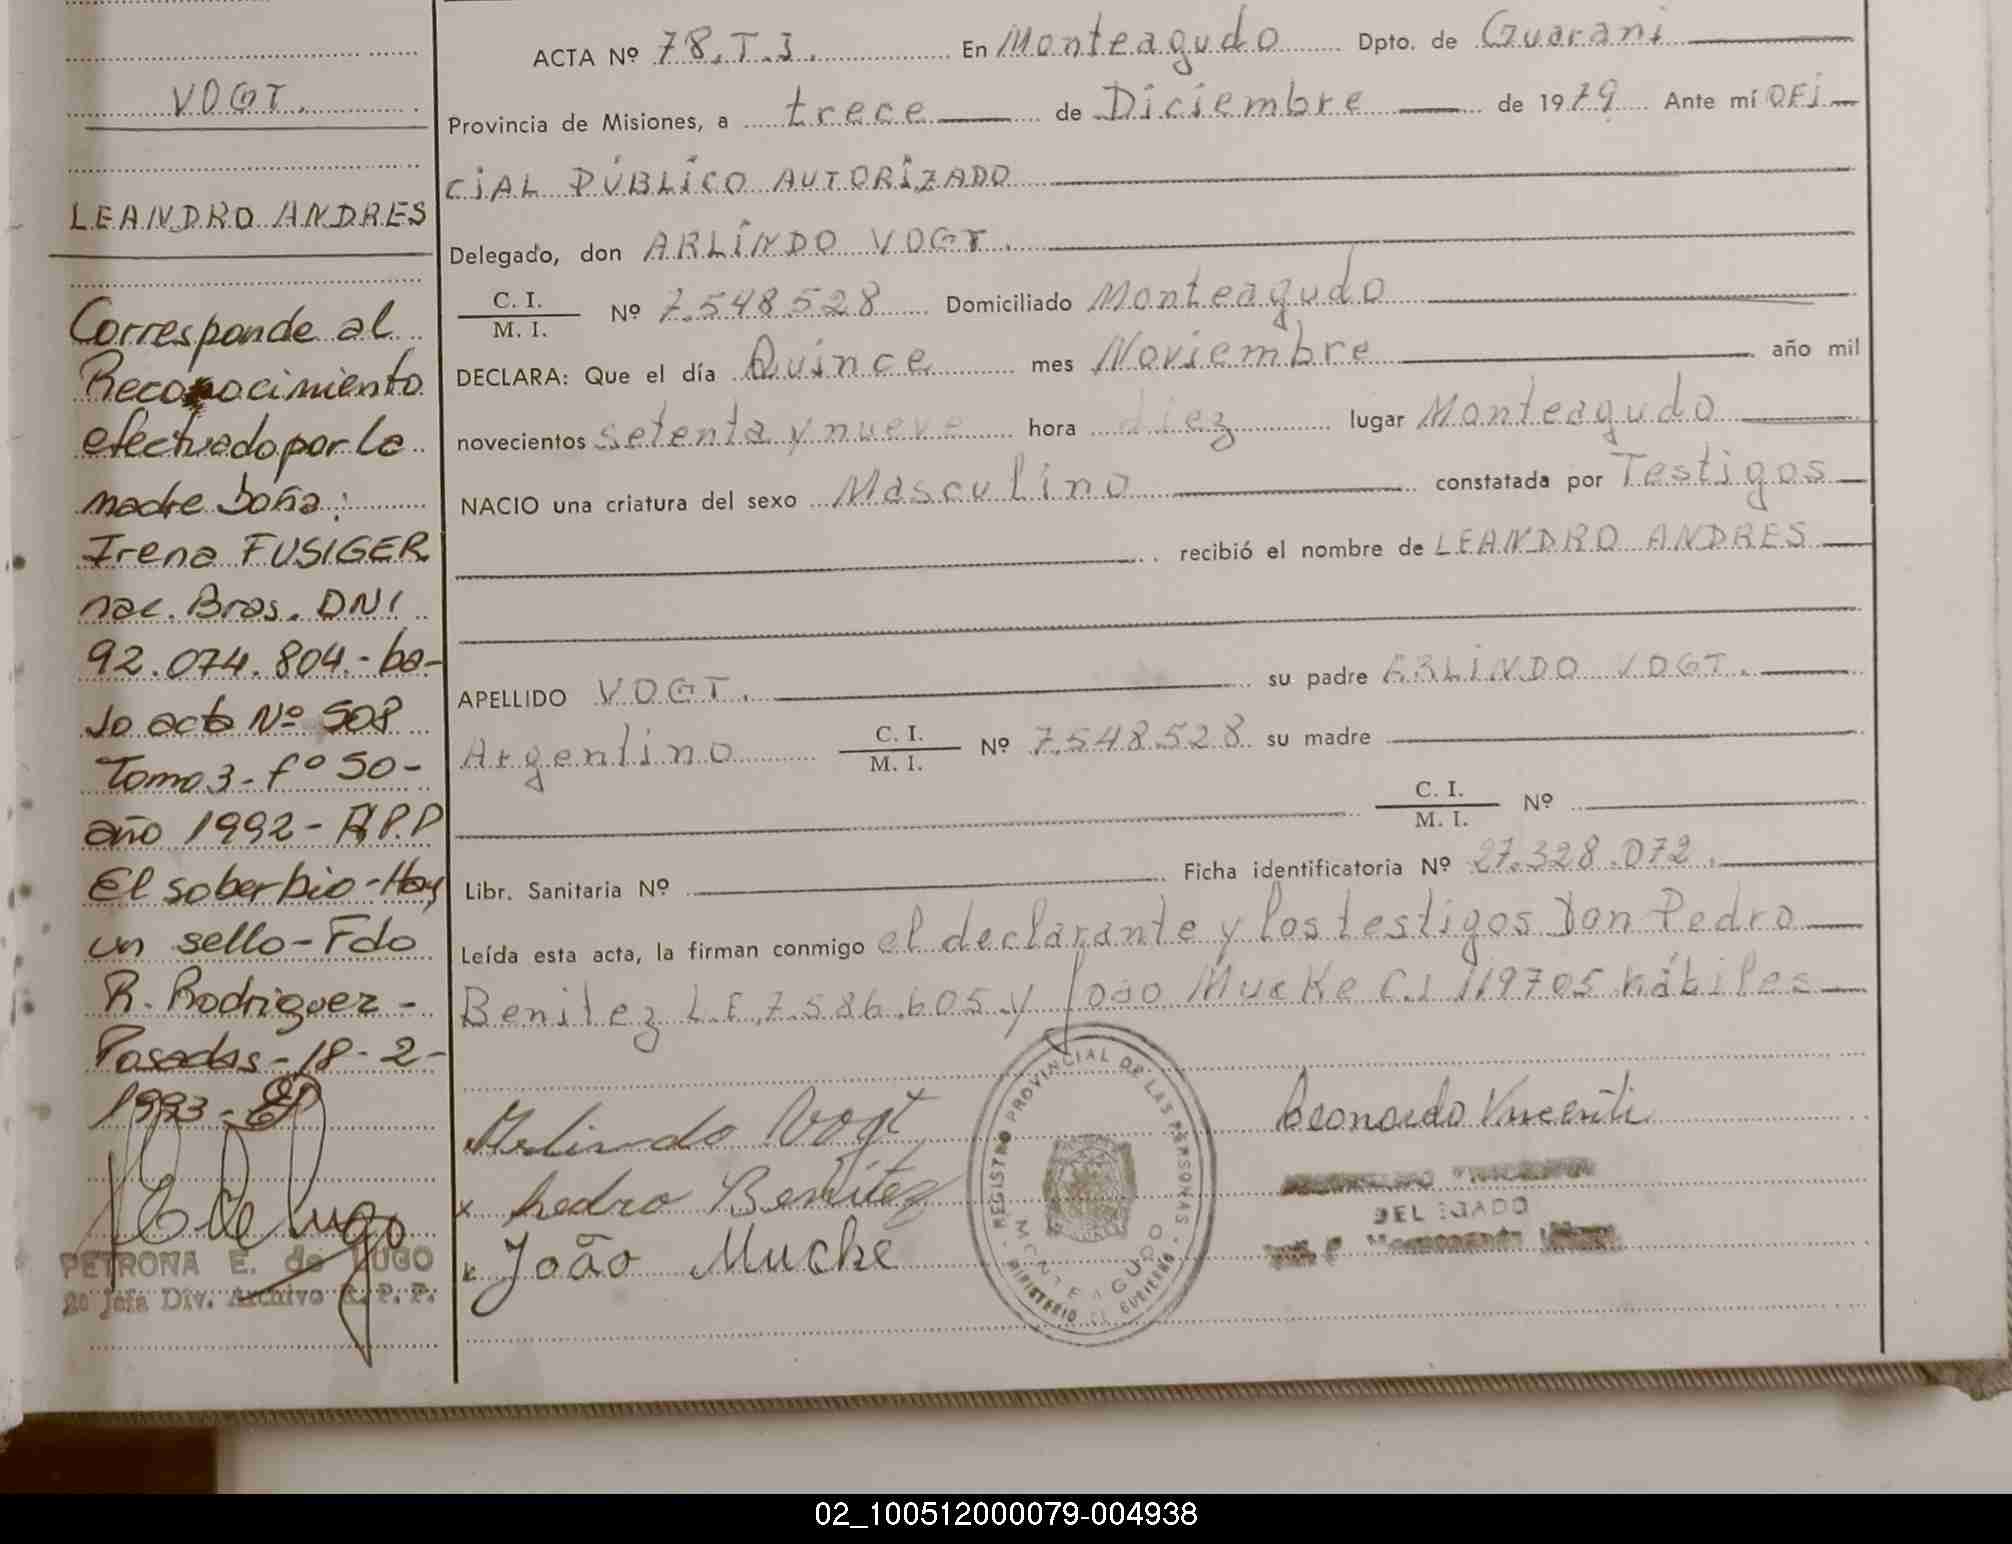 VOGT.
LEANDRO ANDRES
Corresponde al
Reconocimiento
efectuado por la
madre Doña:
Irena FUSIGER
nac. Bras. DNI
92.074.804.- ba-
jo acta Nº 508
Tomo 3 - fº 50 -
año 1992 - R.P.P
El soberbio - Hay
un sello - Fdo
R. Rodriguez -
Posadas - 18 - 2 -
1993 -
PETRONA E. de LUGO
2º Jefa Div. Archivo R. P. P.
ACTA Nº 78.T.I. En Monteagudo Dpto. de Guarani
Provincia de Misiones, a trece de Diciembre de 1979 Ante mí OFI
CIAL PÚBLICO AUTORIZADO
Delegado, don ARLINDO VOGT.
C. I.
M. I. Nº 7.548.528 Domiciliado Monteagudo
DECLARA: Que el día Quince mes Noviembre año mil
novecientos setenta y nueve hora diez lugar Monteagudo
NACIO una criatura del sexo Masculino constatada por Testigos
recibió el nombre de LEANDRO ANDRES
APELLIDO VOGT. su padre ARLINDO VOGT.
Argentino C. I.
M. I. Nº 7.548.528 su madre
C. I.
M. I. Nº
Libr. Sanitaria Nº Ficha identificatoria Nº 27.328.072.
Leída esta acta, la firman conmigo el declarante y los testigos Don Pedro
Benitez L.E. 7.586.605 y João Mucke C.I 119705 hábiles
Arlindo Vogt
x Pedro Benitez
x João Mucke
REGISTRO PROVINCIAL DE LAS PERSONAS
MONTEAGUDO
MINISTERIO DE GOBIERNO
Leonardo Vicenti
DELEGADO
02_100512000079-004938